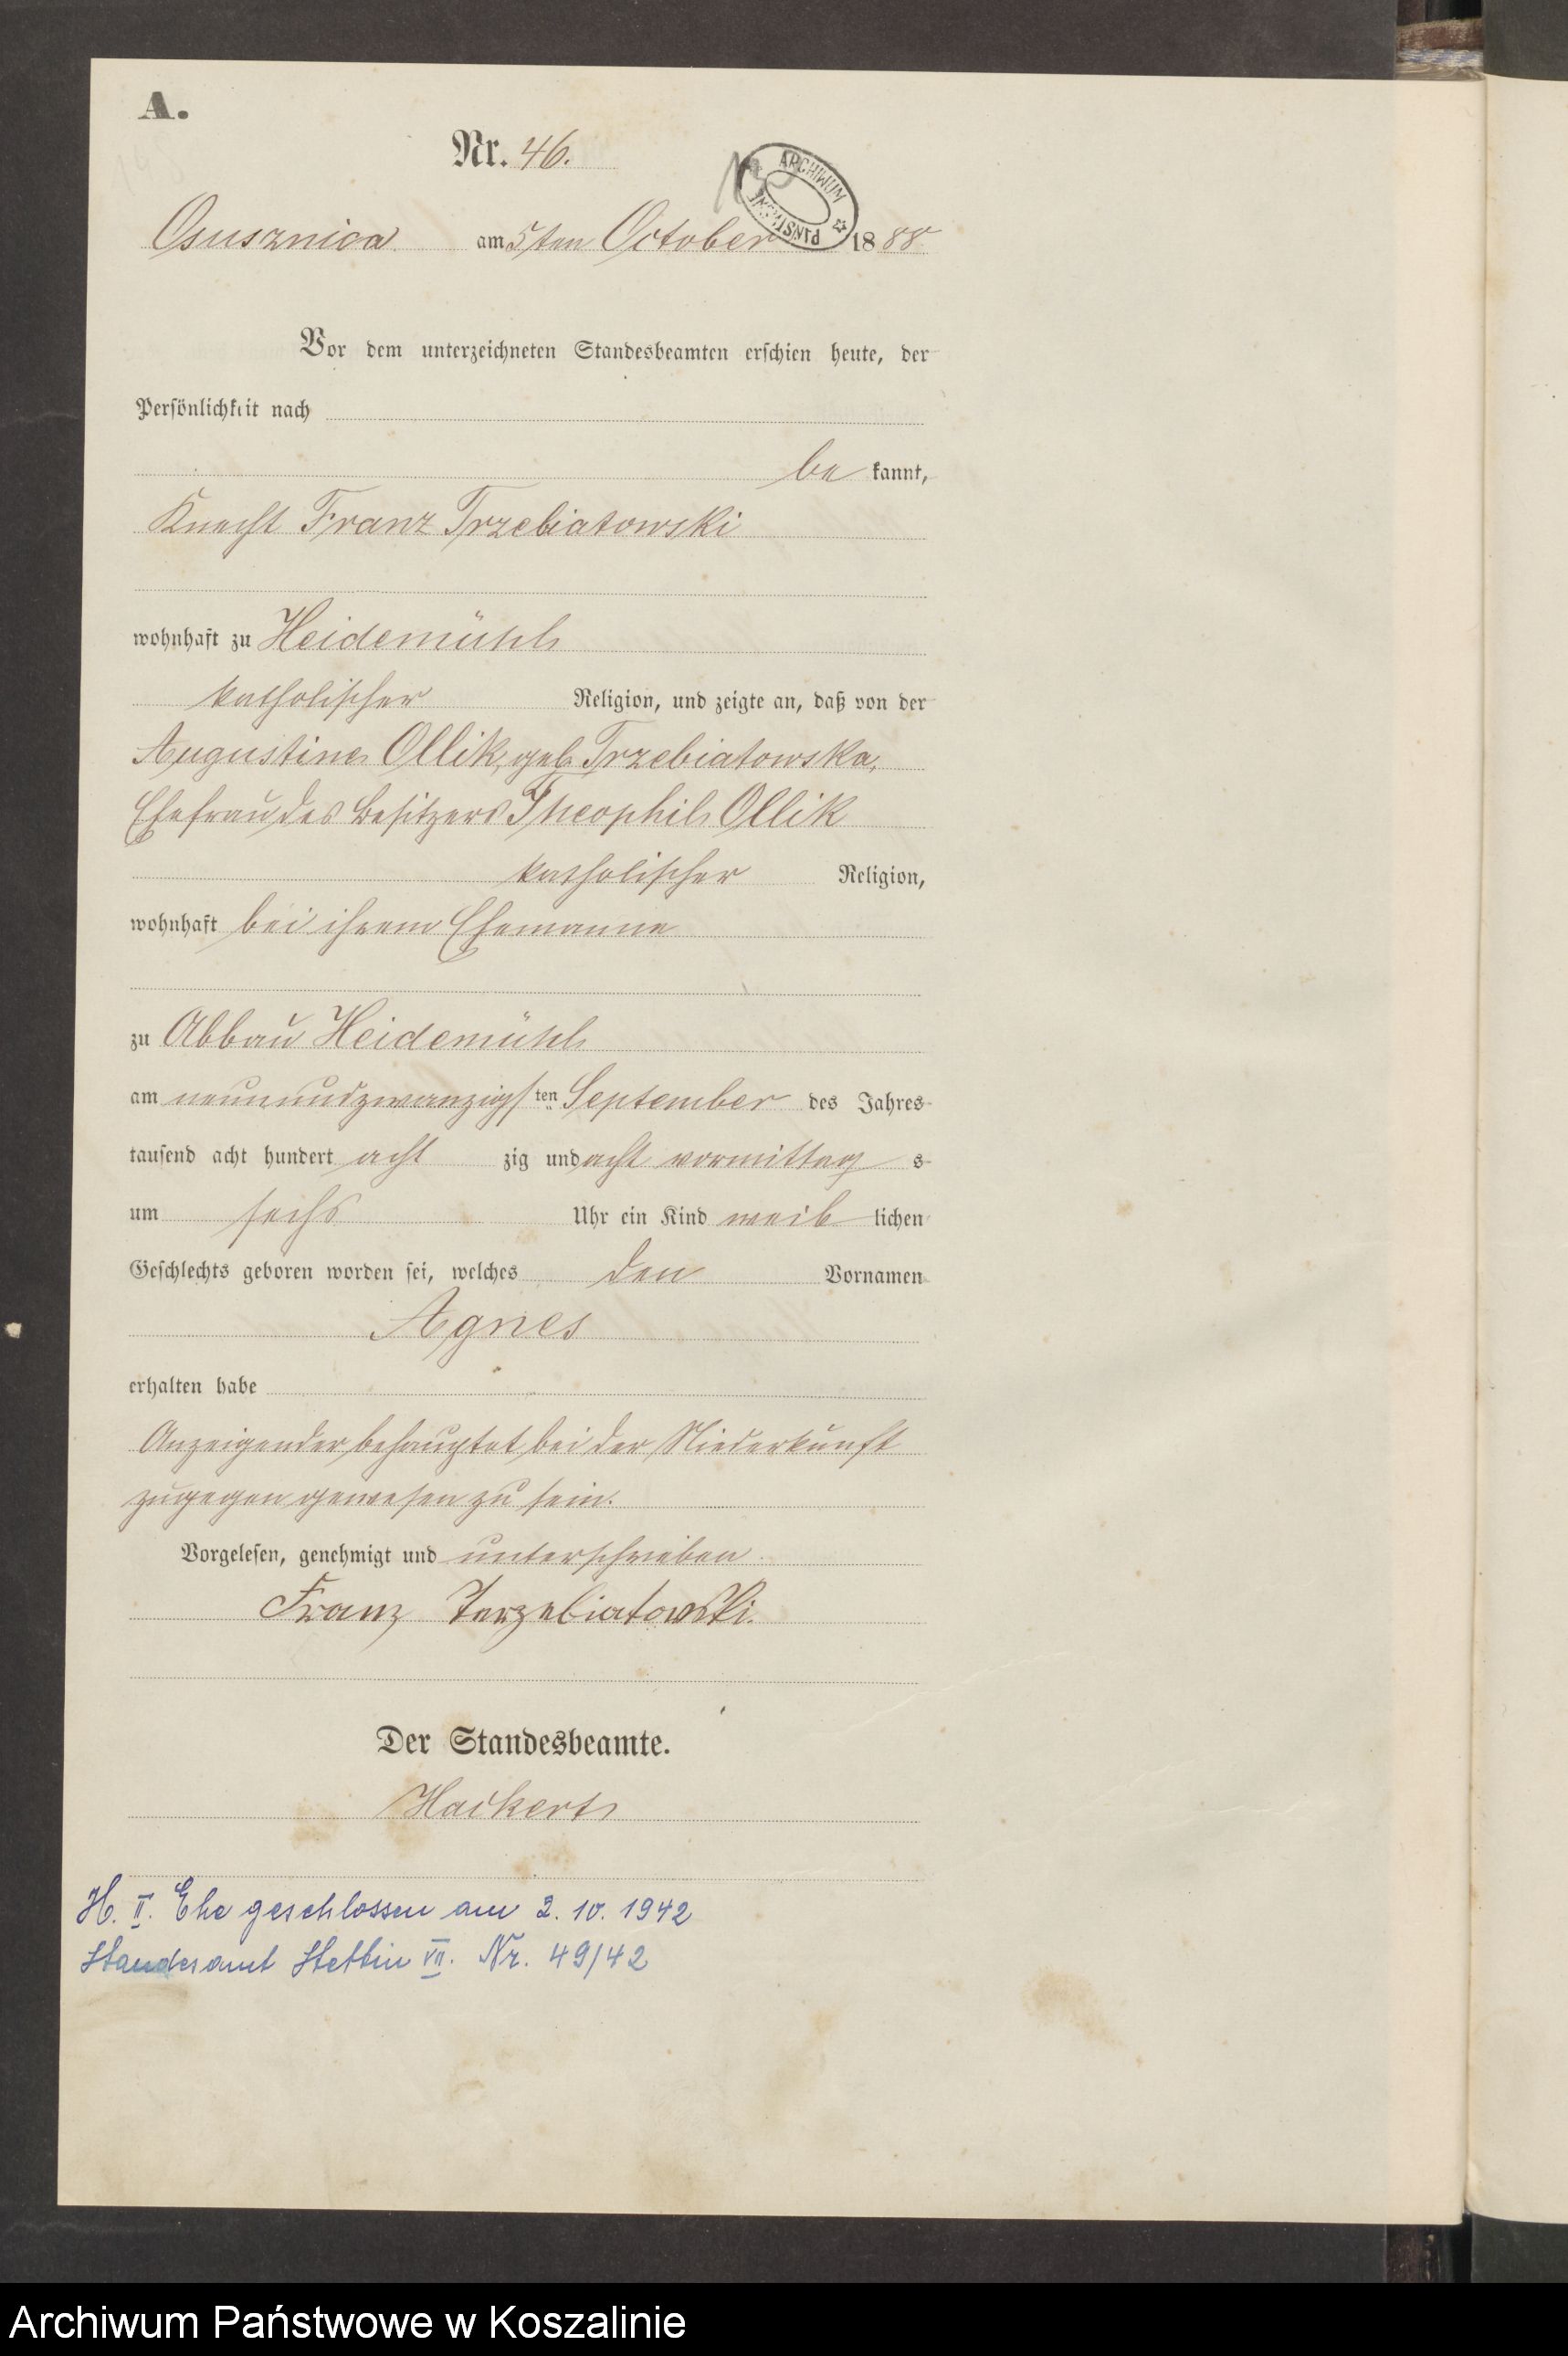 A.
Nr. 46.
ARCHIWUM PAŃSTWOWE
Osusznica am 5ten October 1888
Vor dem unterzeichneten Standesbeamten erschien heute, der
Persönlichkeit nach
be kannt,
Knecht Franz Trzebiatowski
wohnhaft zu Heidemühl
katholischer Religion, und zeigte an, daß von der
Augustine Ollik, geb. Trzebiatowska,
Ehefrau des Besitzers Theophil Ollik
katholischer Religion,
wohnhaft bei ihrem Ehemanne
zu Abbau Heidemühl
am neunundzwanzigsten September des Jahres
tausend acht hundert acht zig und acht vormittag s
um sechs Uhr ein Kind weib lichen
Geschlechts geboren worden sei, welches den Vornamen
Agnes
erhalten habe
Anzeigender behauptet bei der Niederkunft
zugegen gewesen zu sein.
Vorgelesen, genehmigt und unterschrieben.
Franz Terzebiatowski.
Der Standesbeamte.
Hackert
H. II. Ehe geschlossen am 2. 10. 1942
Standesamt Stettin VII. Nr. 49/42
Archiwum Państwowe w Koszalinie